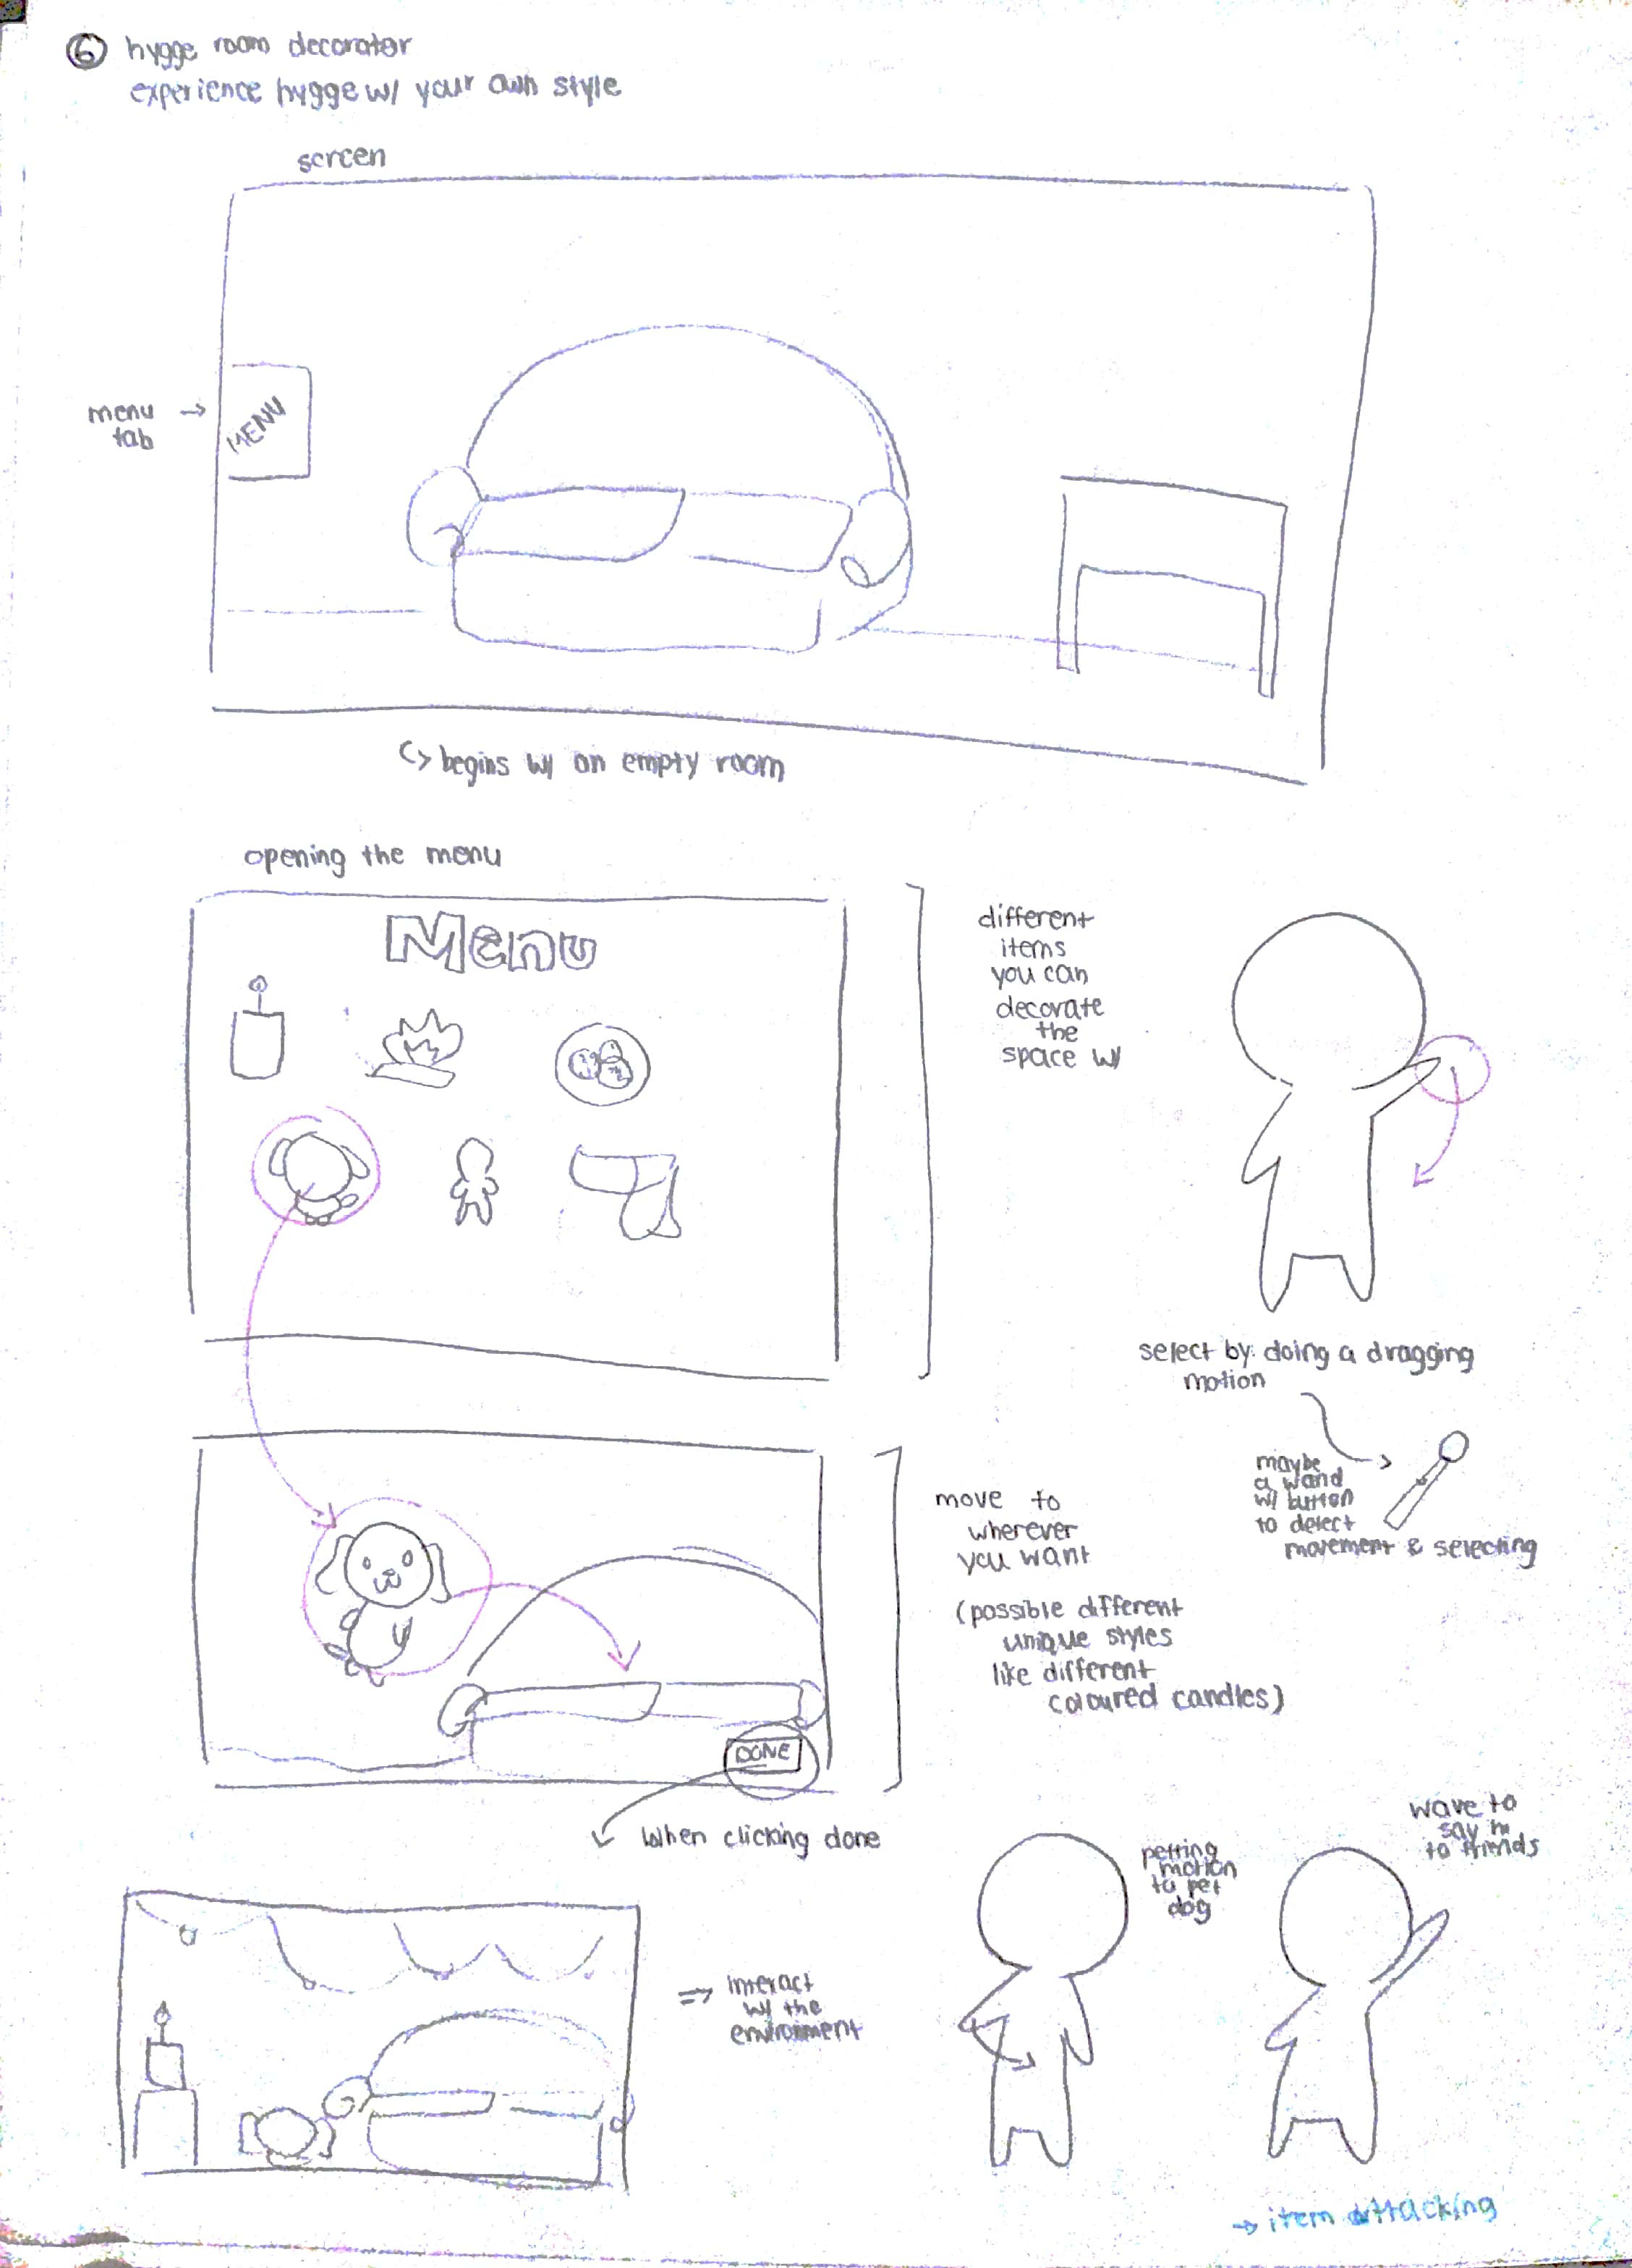 6 hygge room decorator
experience hygge w/ your own style
screen
menu
tab
MENU
begins w/ an empty room
opening the menu
Menu
different
items
you can
decorate
the
space w/
select by: doing a dragging
motion
maybe
a wand
w/ button
to detect
movement & selecting
move to
wherever
you want
(possible different
unique styles
like different
coloured candles)
DONE
when clicking done
interact
w/ the
environment
petting
motion
to pet
dog
wave to
say hi
to friends
→ item tracking